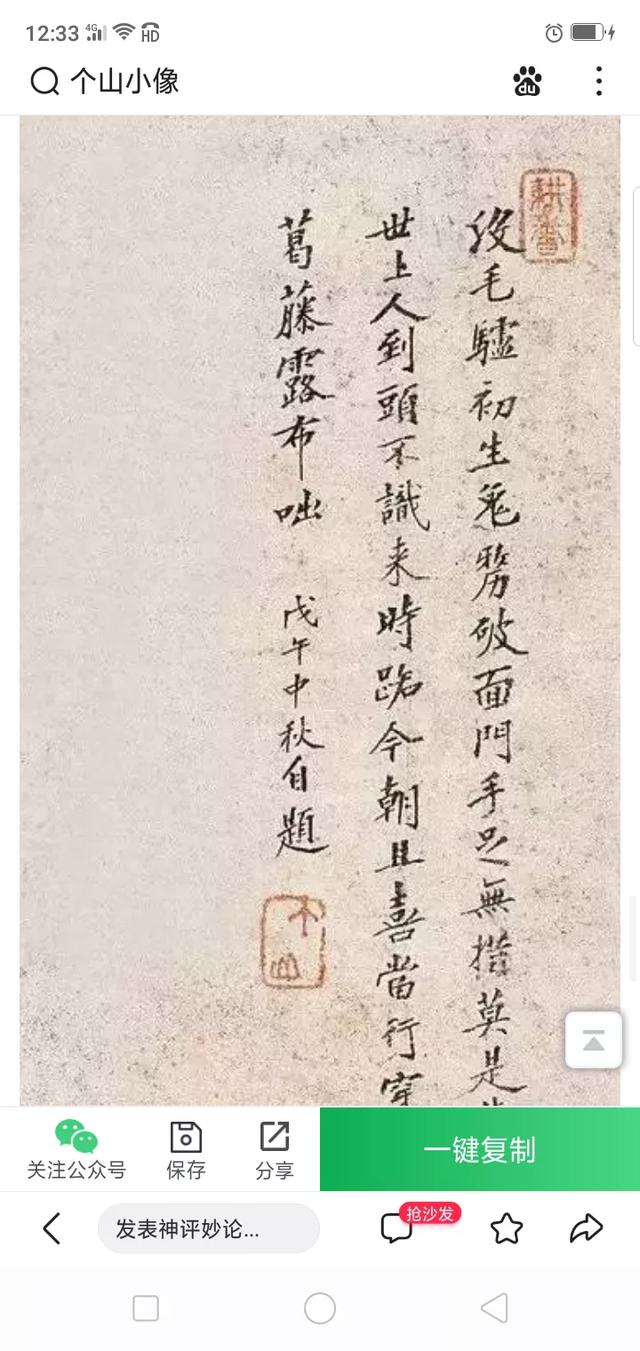 12:33
4G
HD
个山小像
du
没毛驢初生兔剺破面門手足無措莫是
世上人到頭不識来時路今朝且喜當行穿
葛藤露布咄 戊午中秋自題
个山
关注公众号
保存
分享
一键复制
发表神评妙论...
抢沙发